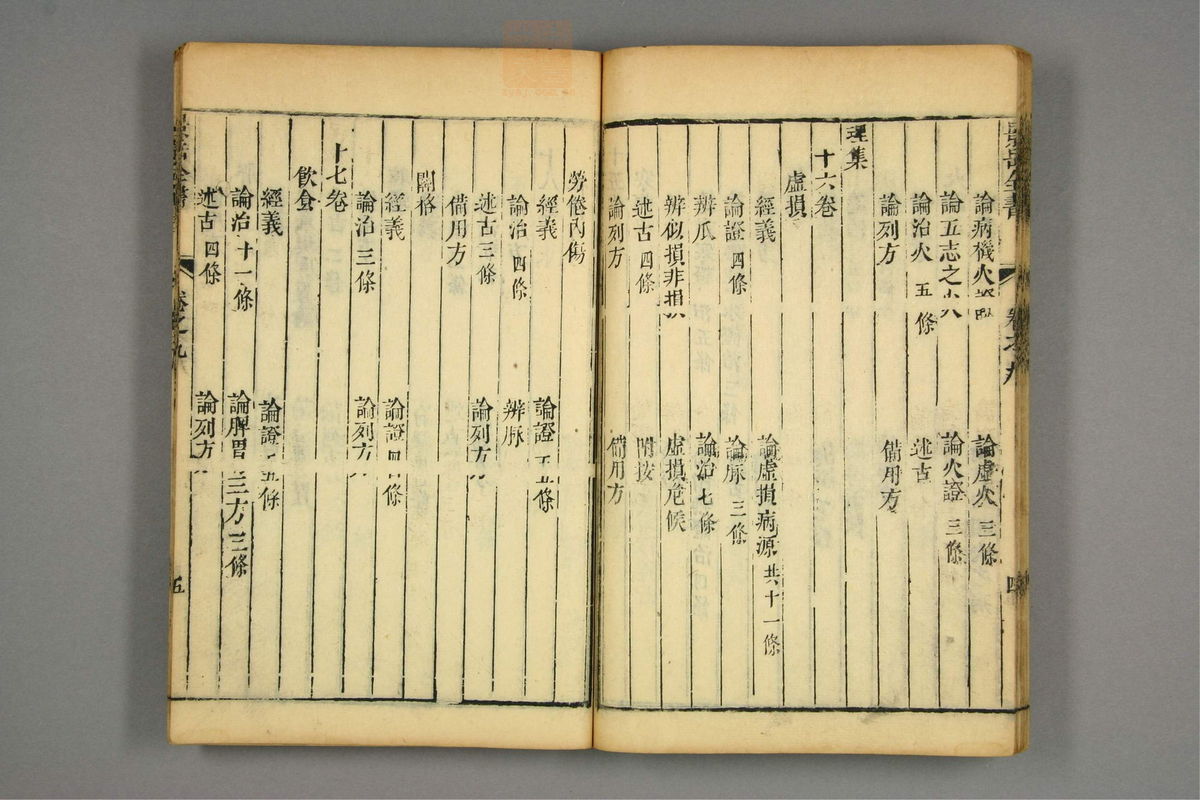 景岳全書
論病機火證 論虛火 三條
論五志之火 論火證 三條
論治火 五條 述古
論列方 備用方
理集
十六卷
虛損
經義 論虛損病源 共十一條
論證 四條 論脈 三條
辨爪 論治 七條
辨似損非損 虛損危候
述古 四條 附按
論列方 備用方
四
勞倦內傷
經義 論證 五條
論治 四條 辨脈
述古 三條 論列方
備用方
關格
經義 論證 四條
論治 三條 論列方
十七卷
飲食
經義 論證 五條
論治 十一條 論脾胃三方 三條
述古 四條 論列方
景岳全書
五